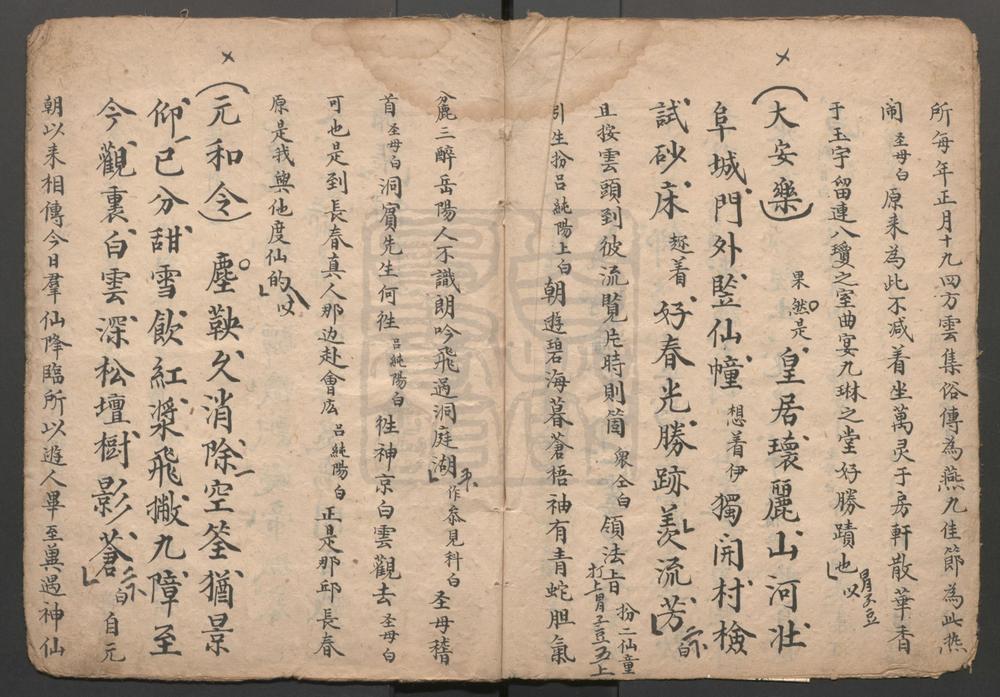 所每年正月十九四方雲集俗傳為燕九佳節為此熱
闹聖母白原来為此不减着坐萬灵于房軒散華香
于玉宇留連八瓊之室曲宴九琳之堂好勝蹟也
(大安樂)果然是皇居瓌麗山河壯
阜城門外豎仙幢想着伊獨開村檢
試砂床趂着好春光勝跡羨流芳
且按雲頭到彼流覧片時則箇衆仝白領法旨扮二仙童
引生扮吕純陽上白朝遊碧海暮蒼梧袖有青蛇胆氣
麄三醉岳陽人不識朗吟飛過洞庭湖作叅見科白圣母稽
首圣母白洞賔先生何徃吕純陽白徃神京白雲觀去圣母白
可也是到長春真人那边赴會庅吕純陽白正是那邱長春
原是我與他度仙的
(元和令)塵鞅久消除空筌猶景
仰已分甜雪飲紅漿飛撇九障至
今觀裏白雲深松壇樹影蒼白自元
朝以来相傳今日羣仙降臨所以遊人畢至兾遇神仙